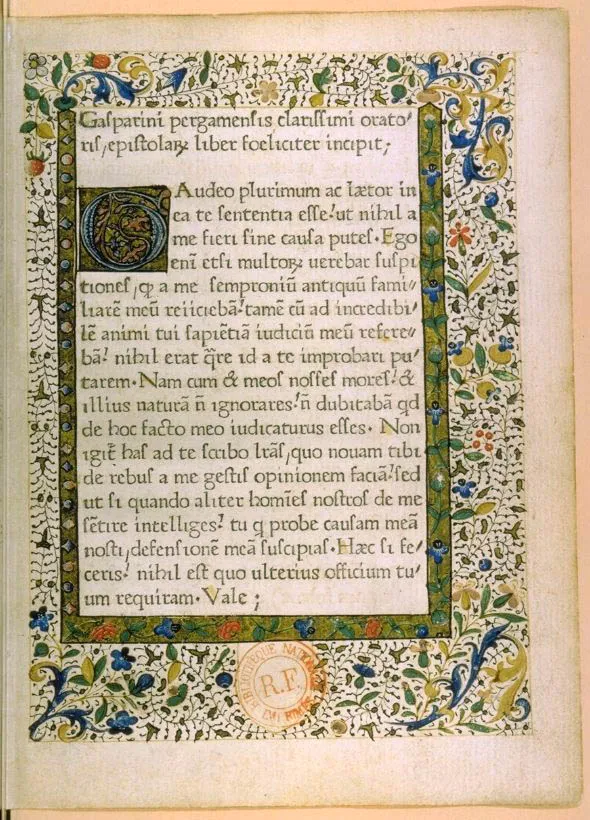 Gasparini pergamensis clarissimi orato⸗
ris, epistolaꝝ liber foeliciter incipit;
GAudeo plurimum ac lætor in
ea te sententia esse: ut nihil a
me fieri sine causa putes. Ego
eni etsi multoꝝ uerebar suspi
tiones, ꝙ a me semproniū antiquū fami⸗
liarē meū reiiciebā: tamē cū ad incredibi⸗
lē animi tui sapiētiā iudiciū meū refere⸗
bā: nihil erat q̄re id a te improbari pu⸗
tarem. Nam cum & meos nosses mores: &
illius naturā n̄ ignorares: n̄ dubitabā qd
de hoc facto meo iudicaturus esses. Non
igit̄ has ad te scribo lr̄as, quo nouam tibi
de rebus a me gestis opinionem faciā: sed
ut si quando aliter homīes nostros de me
sētire intelliges: tu q probe causam meā
nosti, defensionē meā suscipias. Hæc si fe⸗
ceris: nihil est quo ulterius officium tu⸗
um requiram. Vale;
BIBLIOTHEQUE NATIONALE
R.F.
IMPRIMÉS